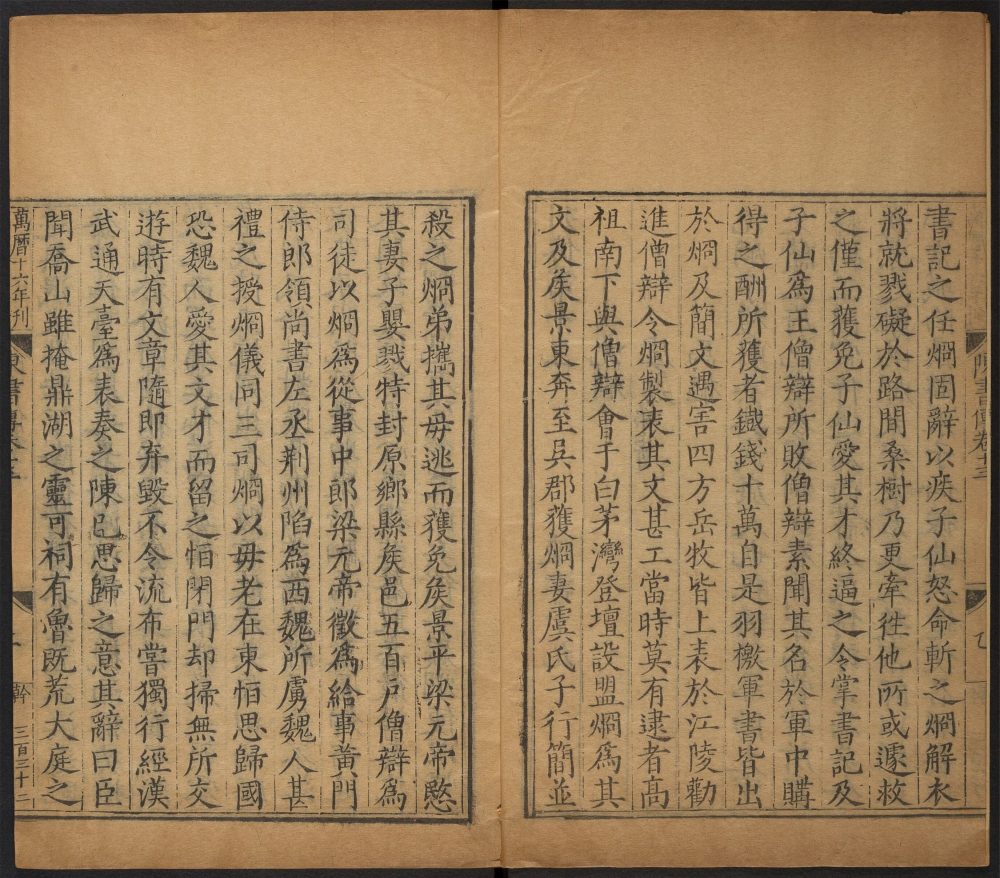 書記之任烱固辭以疾子仙怒命斬之烱解衣
將就戮礙於路間桑樹乃更牽徃他所或遽救
之僅而獲免子仙愛其才終逼之令掌書記及
子仙爲王僧辯所敗僧辯素聞其名於軍中購
得之酬所獲者鐡錢十萬自是羽檄軍書皆出
於烱及簡文遇害四方岳牧皆上表於江陵勸
進僧辯令烱製表其文甚工當時莫有逮者高
祖南下與僧辯會于白茅灣登壇設盟烱爲其
文及矦景東奔至吳郡獲烱妻虞氏子行簡並
殺之烱弟攜其毋逃而獲免矦景平梁元帝愍
其妻子嬰戮特封原鄉縣矦邑五百戶僧辯爲
司徒以烱爲從事中郎梁元帝徵爲給事黃門
侍郎領尚書左丞荆州陷爲西魏所虜魏人甚
禮之授烱儀同三司烱以毋老在東恒思歸國
恐魏人愛其文才而留之恒閉門却掃無所交
遊時有文章隨即弃毀不令流布嘗獨行經漢
武通天臺爲表奏之陳已思歸之意其辭曰臣
聞喬山雖掩鼎湖之靈可祠有魯既荒大庭之
萬曆十六年刋
幹 三百三十二